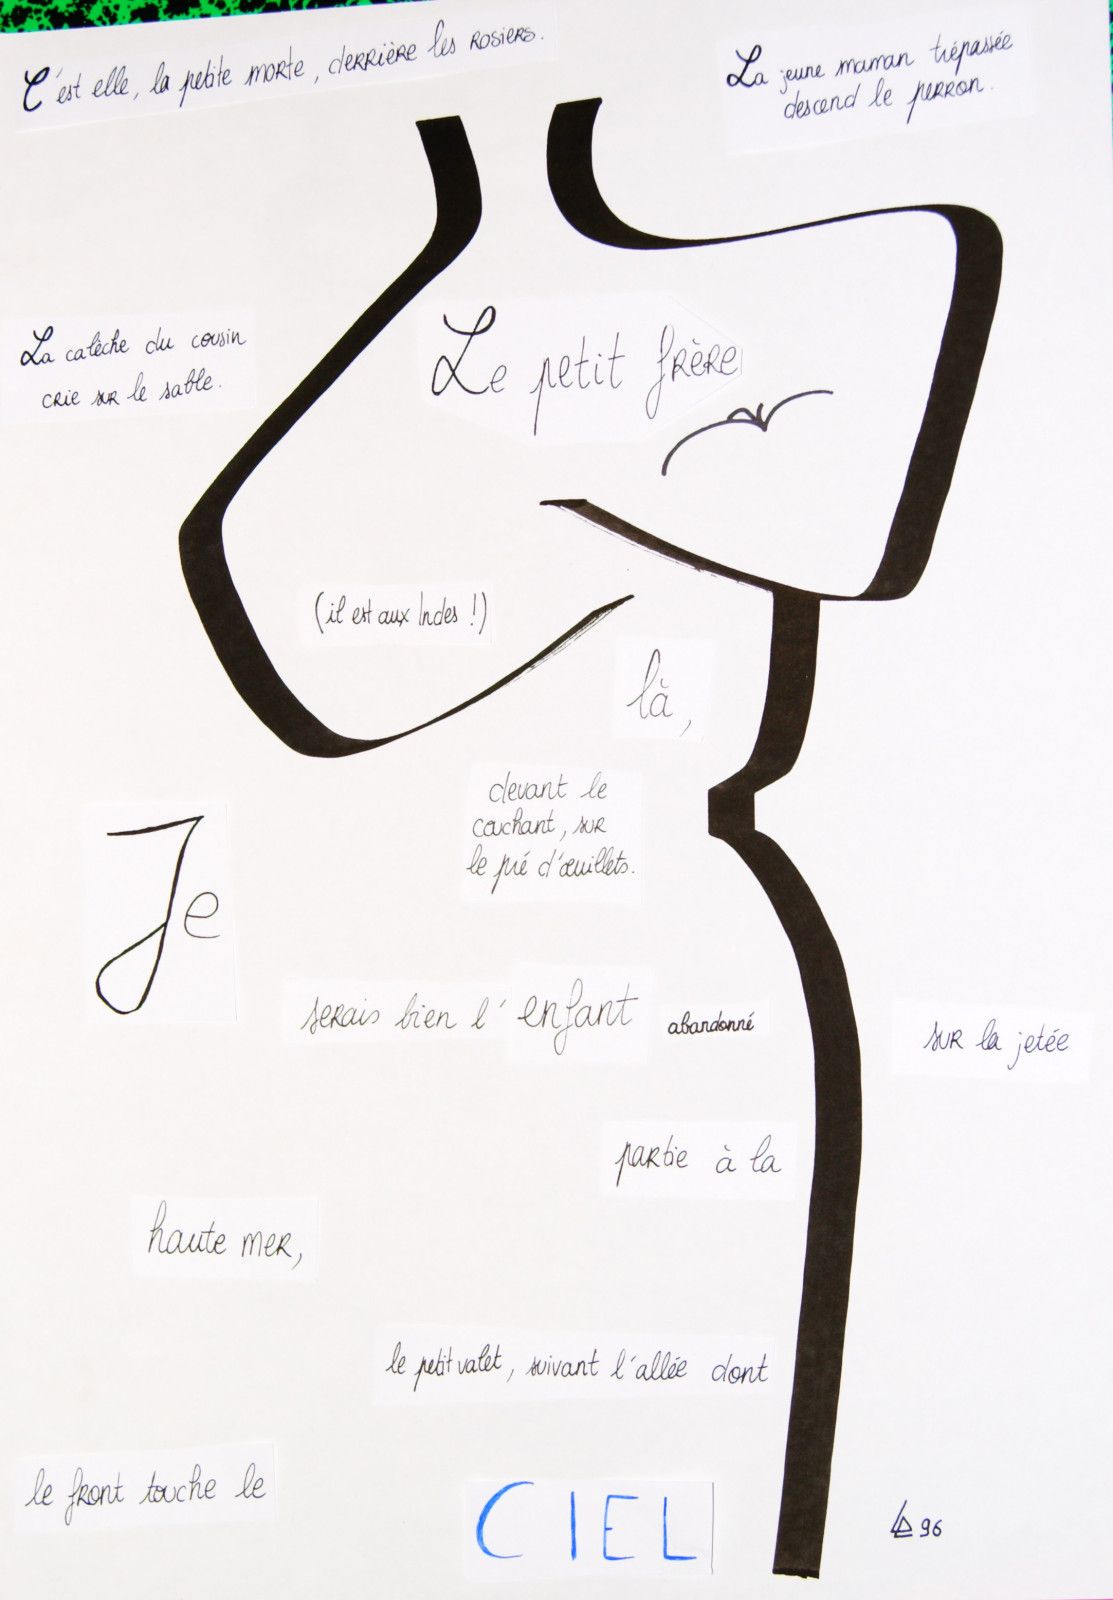 C'est elle, la petite morte, derrière les rosiers.
La jeune maman trépassée
descend le perron.
La calèche du cousin
crie sur le sable.
Le petit frère
(il est aux Indes !)
là,
devant le
couchant, sur
le pré d'œuillets.
Je
serais bien l'enfant abandonné sur la jetée
partie à la
haute mer,
le petit valet, suivant l'allée dont
le front touche le
CIEL
96